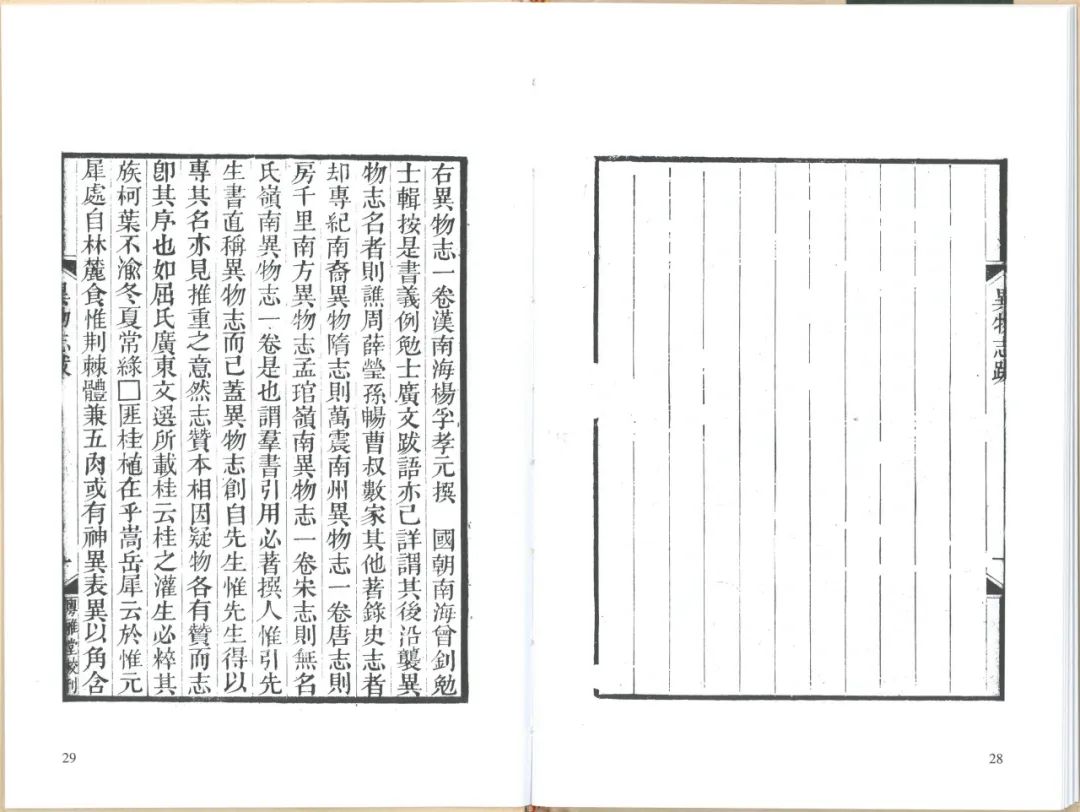 異物志跋
28
右異物志一卷漢南海楊孚孝元撰　國朝南海曾釗勉
士輯按是書義例勉士廣文跋語亦已詳謂其後沿襲異
物志名者則譙周薛瑩孫暢曹叔數家其他著錄史志者
却專紀南裔異物隋志則萬震南州異物志一卷唐志則
房千里南方異物志孟琯嶺南異物志一卷宋志則無名
氏嶺南異物志一卷是也謂羣書引用必著撰人惟引先
生書直稱異物志而已蓋異物志創自先生惟先生得以
專其名亦見推重之意然志贊本相因疑物各有贊而志
卽其序也如屈氏廣東文選所載桂云桂之灌生必粹其
族柯葉不渝冬夏常綠□匪桂植在乎嵩岳犀云於惟元
犀處自林麓食惟荆棘體兼五肉或有神異表異以角含
異物志跋
一
傳雅堂校刊
29